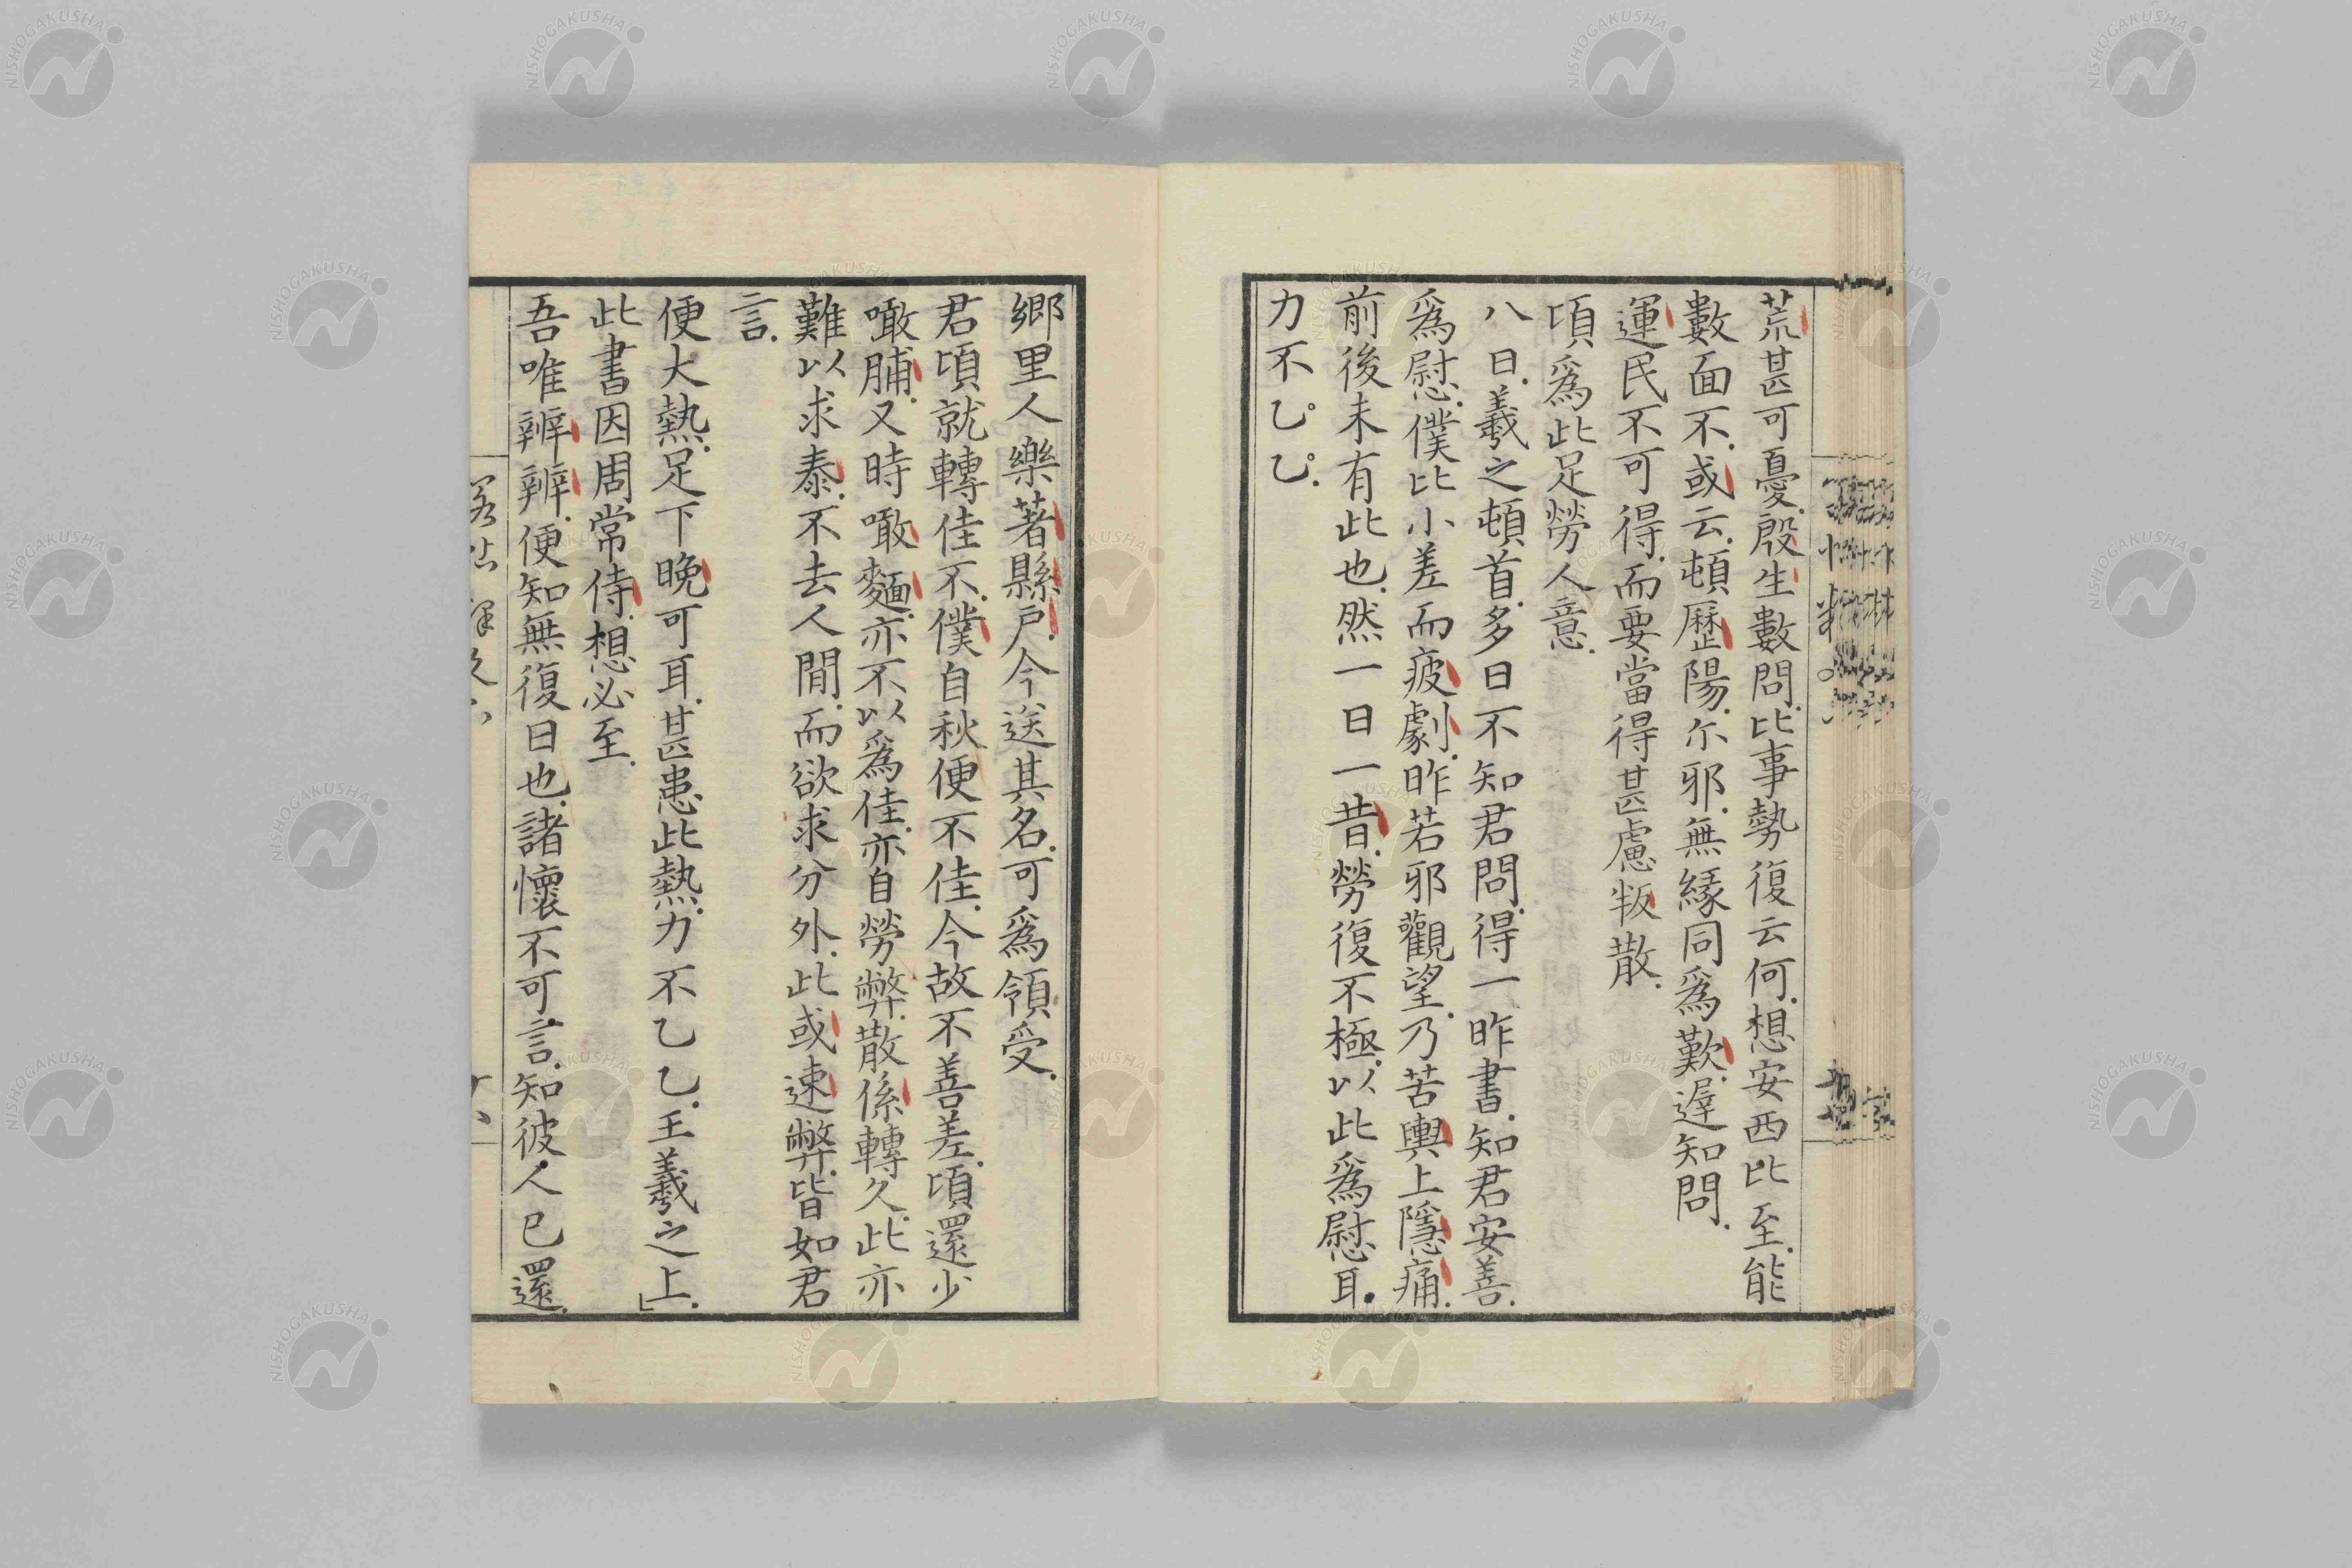 荒甚可憂.殷生數問.比事勢復云何.想安西比至.能
數面不.或云.頓歷陽.尓邪.無緣同爲歎.遲知問.
運民不可得.而要當得甚慮叛散.
頃爲此足勞人意.
八日.羲之頓首.多日不知君問.得一昨書.知君安善.
爲慰.僕比小差而疲劇.昨若邪觀望.乃苦輿上隱痛.
前後未有此也.然一日一昔.勞復不極.以此爲慰耳.
力不乙乙.
鄉里人樂著縣戶.今送其名.可爲領受.
君頃就轉佳不.僕自秋便不佳.今故不善差.頃還少
噉脯.又時噉麵.亦不以爲佳.亦自勞弊.散係轉久.此亦
難以求泰.不去人間.而欲求分外.此或速弊.皆如君
言.
便大熱.足下晚可耳.甚患此熱.力不乙乙.王羲之上.」
此書因周常侍.想必至.
吾唯辨辨.便知無復日也.諸懷不可言.知彼人已還.
NISHOGAKUSHA